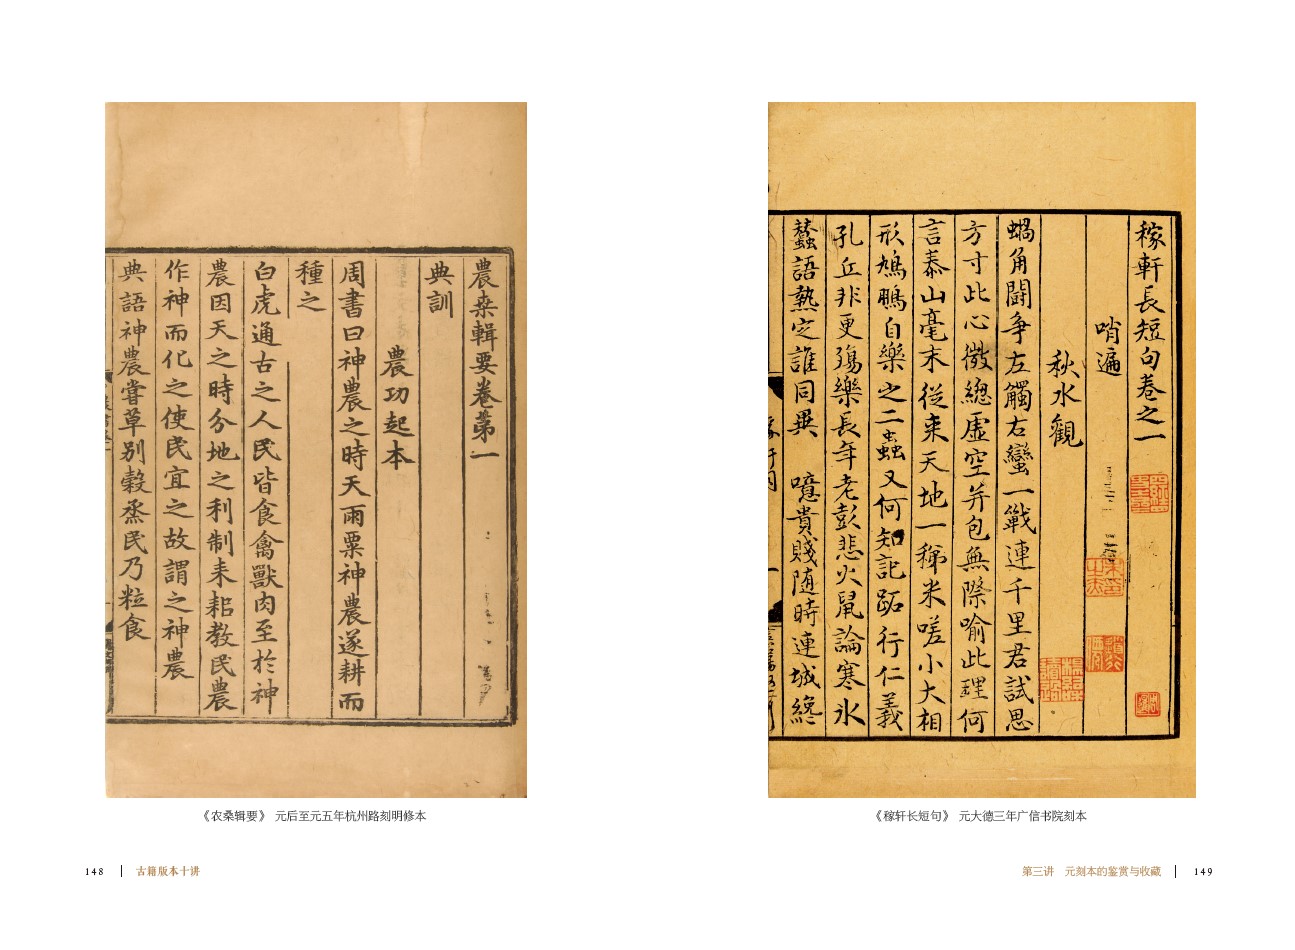 農桒輯要卷第一
典訓
農功起本
周書曰神農之時天雨粟神農遂耕而
種之
白虎通古之人民皆食禽獸肉至於神
農因天之時分地之利制耒耜教民農
作神而化之使民宜之故謂之神農
典語神農嘗草别穀烝民乃粒食
《农桑辑要》 元后至元五年杭州路刻明修本
148 古籍版本十讲
稼軒長短句卷之一
哨遍
秋水觀
蝸角鬭争左觸右蠻一戰連千里君試思
方寸此心微總虚空并包無際喻此理何
言泰山毫末從来天地一稊米嗟小大相
形鳩鵬自樂之二蟲又何知記跖行仁義
孔丘非更殤樂長年老彭悲火鼠論寒氷
蠶語熱定誰同異 噫貴賤随時連城纔
《稼轩长短句》 元大德三年广信书院刻本
第三讲 元刻本的鉴赏与收藏 149